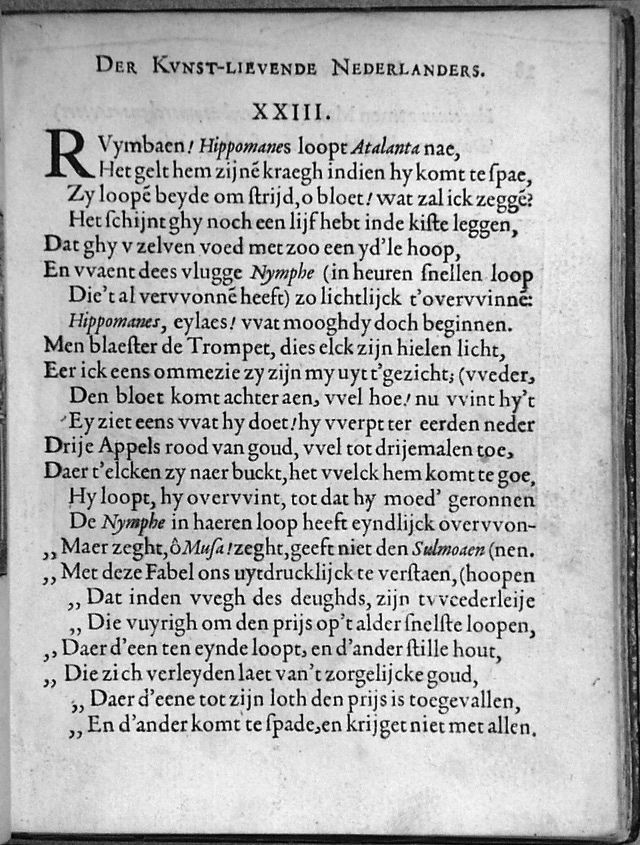 DER KVNST-LIEVENDE NEDERLANDERS.
XXIII.
RVymbaen! Hippomanes loopt Atalanta nae,
Het gelt hem zijnē kraegh indien hy komt te spae,
Zy loopē beyde om strijd, o bloet! wat zal ick zeggē?
Het schijnt ghy noch een lijf hebt inde kiste leggen,
Dat ghy v zelven voed met zoo een yd'le hoop,
En vvaent dees vlugge Nymphe (in heuren snellen loop
Die't al vervvonnē heeft) zo lichtlijck t'overvvinnē:
Hippomanes, eylaes! vvat mooghdy doch beginnen.
Men blaester de Trompet, dies elck zijn hielen licht,
Eer ick eens ommezie zy zijn my uyt t'gezicht; (vveder,
Den bloet komt achter aen, vvel hoe! nu vvint hy't
Ey ziet eens vvat hy doet! hy vverpt ter eerden neder
Drije Appels rood van goud, vvel tot drijemalen toe,
Daer t'elcken zy naer buckt, het vvelck hem komt te goe,
Hy loopt, hy overvvint, tot dat hy moed' geronnen
De Nymphe in haeren loop heeft eyndlijck overvvon-
„ Maer zeght, ô Musa! zeght, geeft niet den Sulmoaen (nen.
„ Met deze Fabel ons uytdrucklijck te verstaen, (hoopen
„ Dat inden vvegh des deughds, zijn tvveederleije
„ Die vuyrigh om den prijs op't alder snelste loopen,
„ Daer d'een ten eynde loopt, en d'ander stille hout,
„ Die zich verleyden laet van't zorgelijcke goud,
„ Daer d'eene tot zijn loth den prijs is toegevallen,
„ En d'ander komt te spade, en krijget niet met allen.